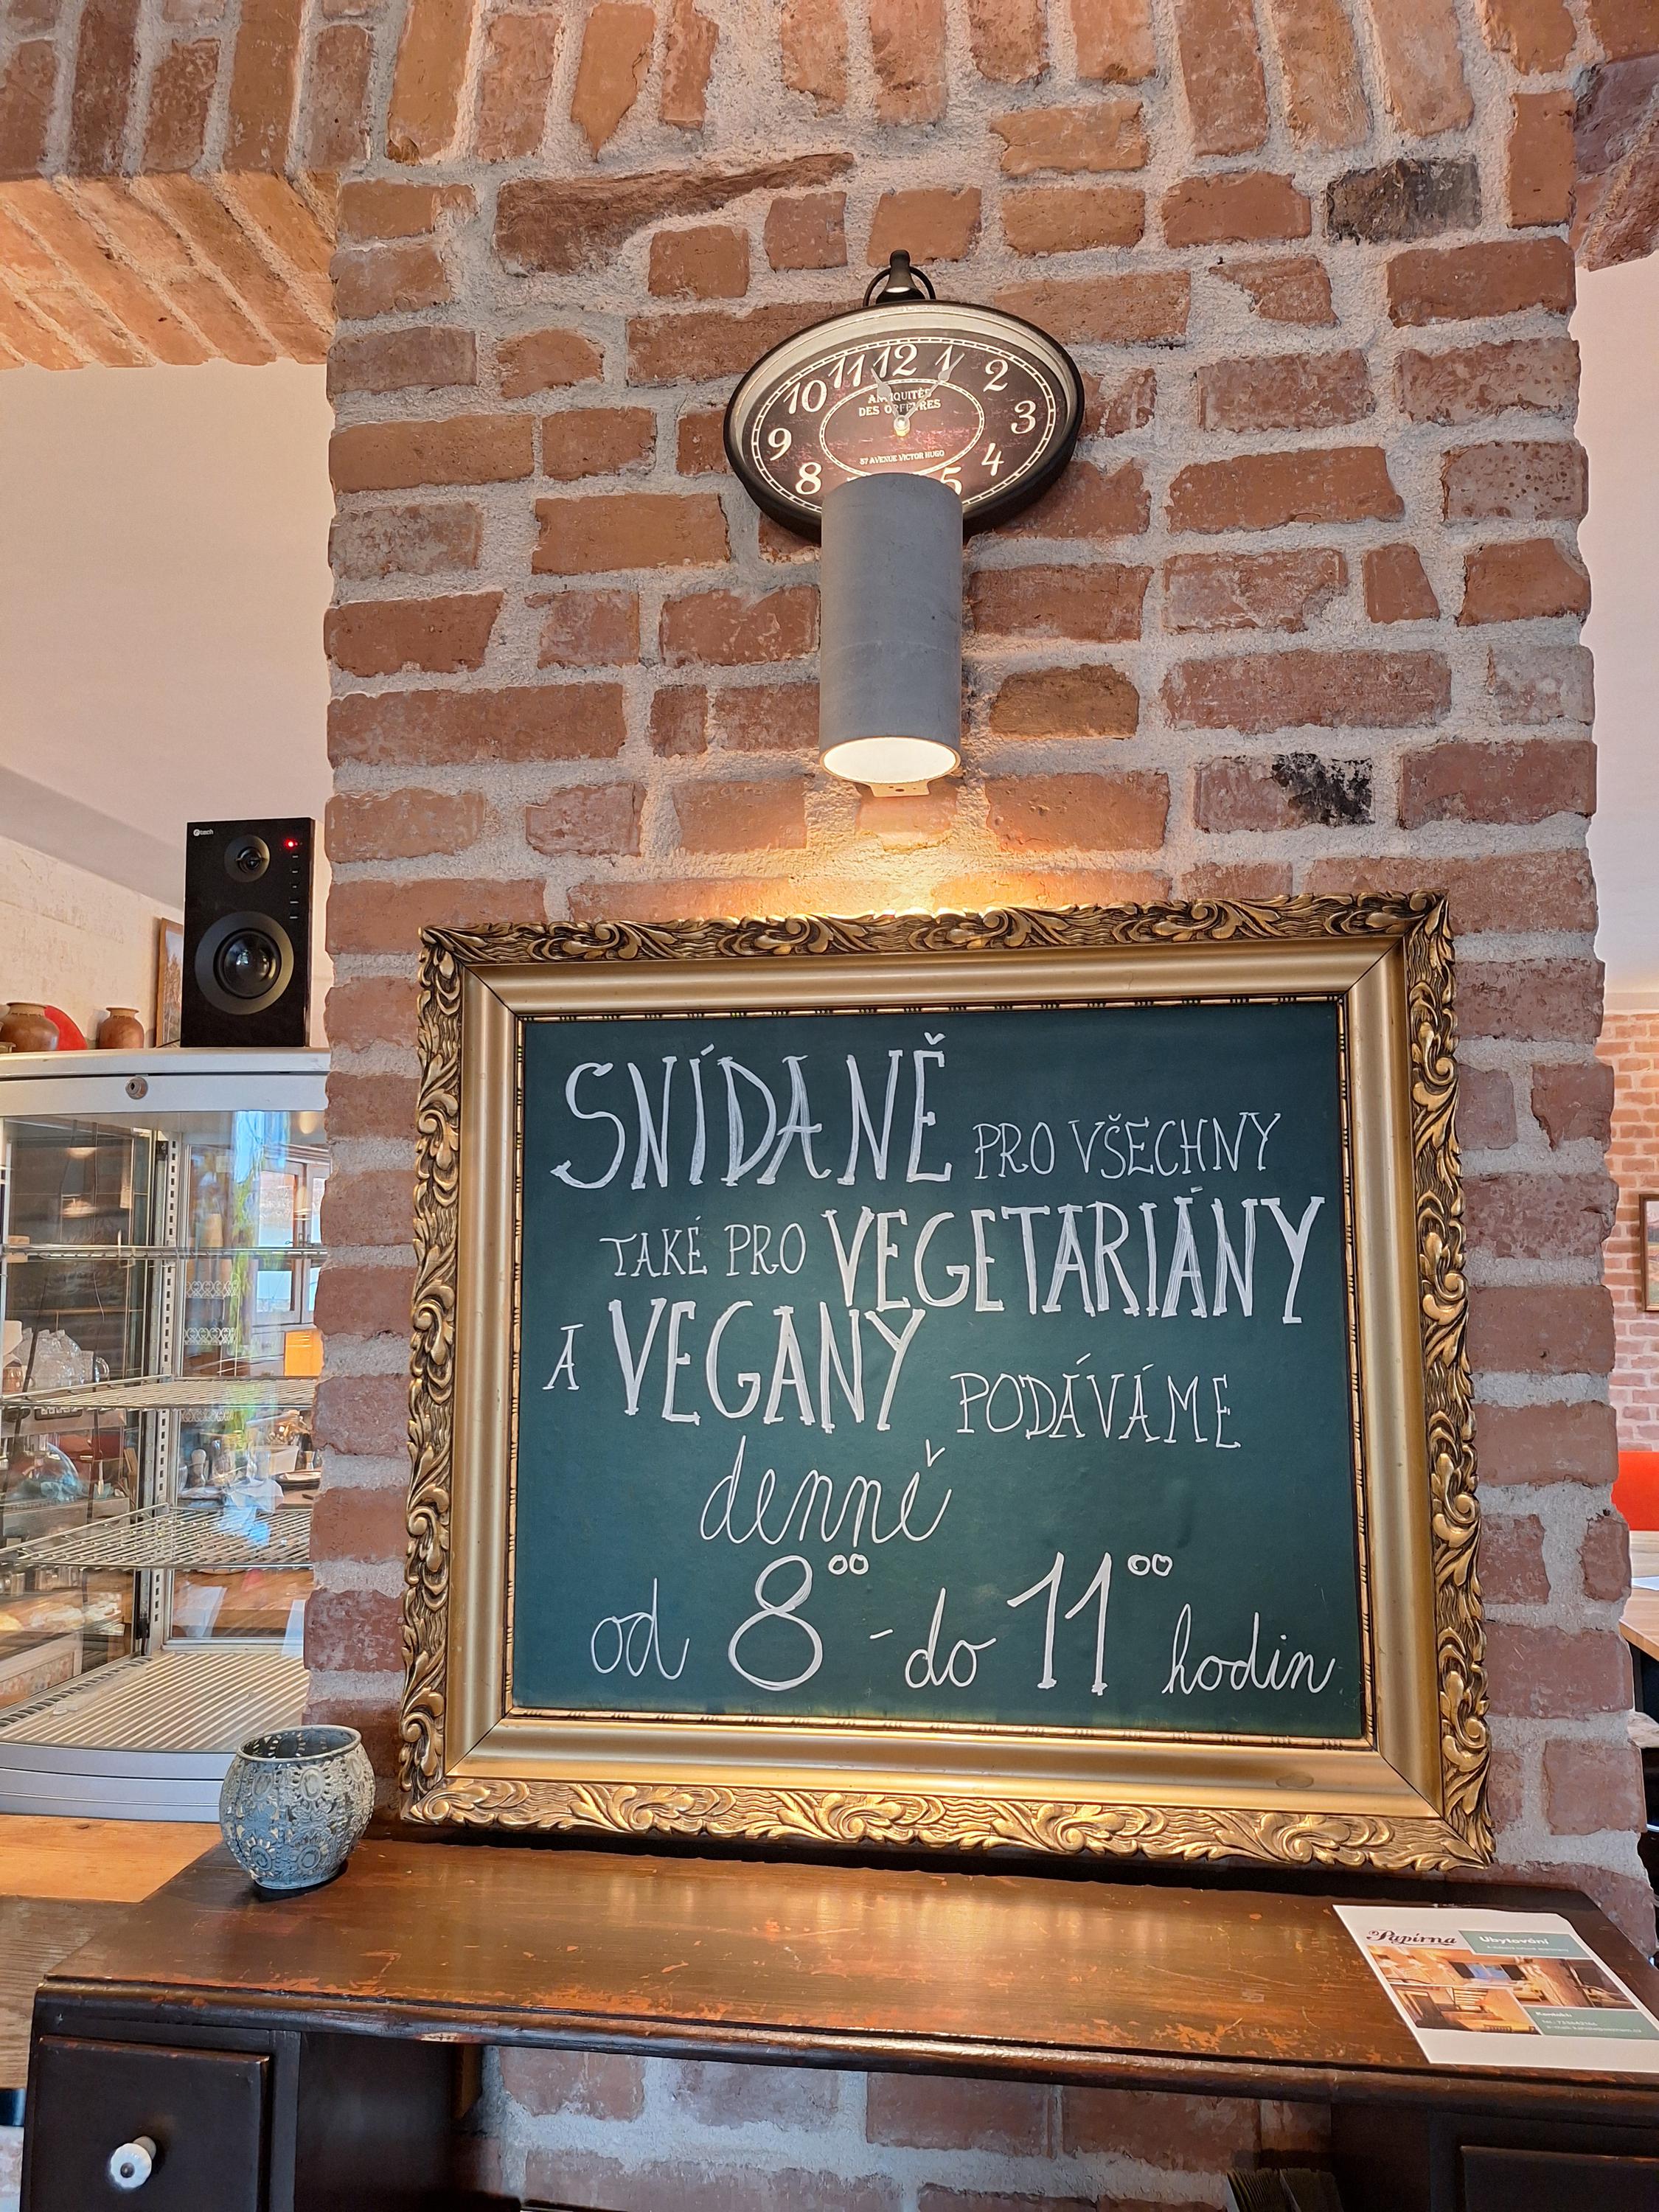 11 12 1
10 2
9 3
8 4
5
ANTIQUITÉS
DES ORFÈVRES
37 AVENUE VICTOR HUGO
SNÍDANĚ PRO VŠECHNY
TAKÉ PRO VEGETARIÁNY
A VEGANY PODÁVÁME
denně
od 8⁰⁰ - do 11⁰⁰ hodin
Papírna
Ubytování
Kontakt: